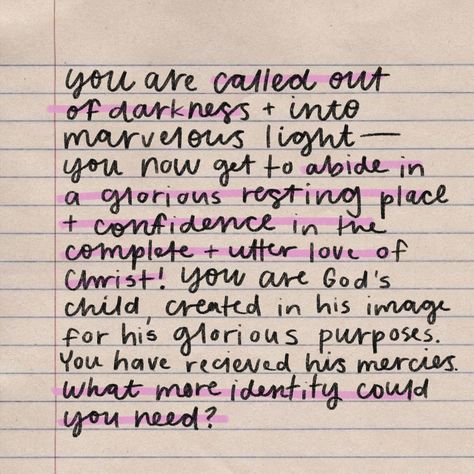 you are called out
of darkness + into
marvelous light—
you now get to abide in
a glorious resting place
+ confidence in the
complete + utter love of
Christ! you are God's
child, created in his image
for his glorious purposes.
You have recieved his mercies.
what more identity could
you need?